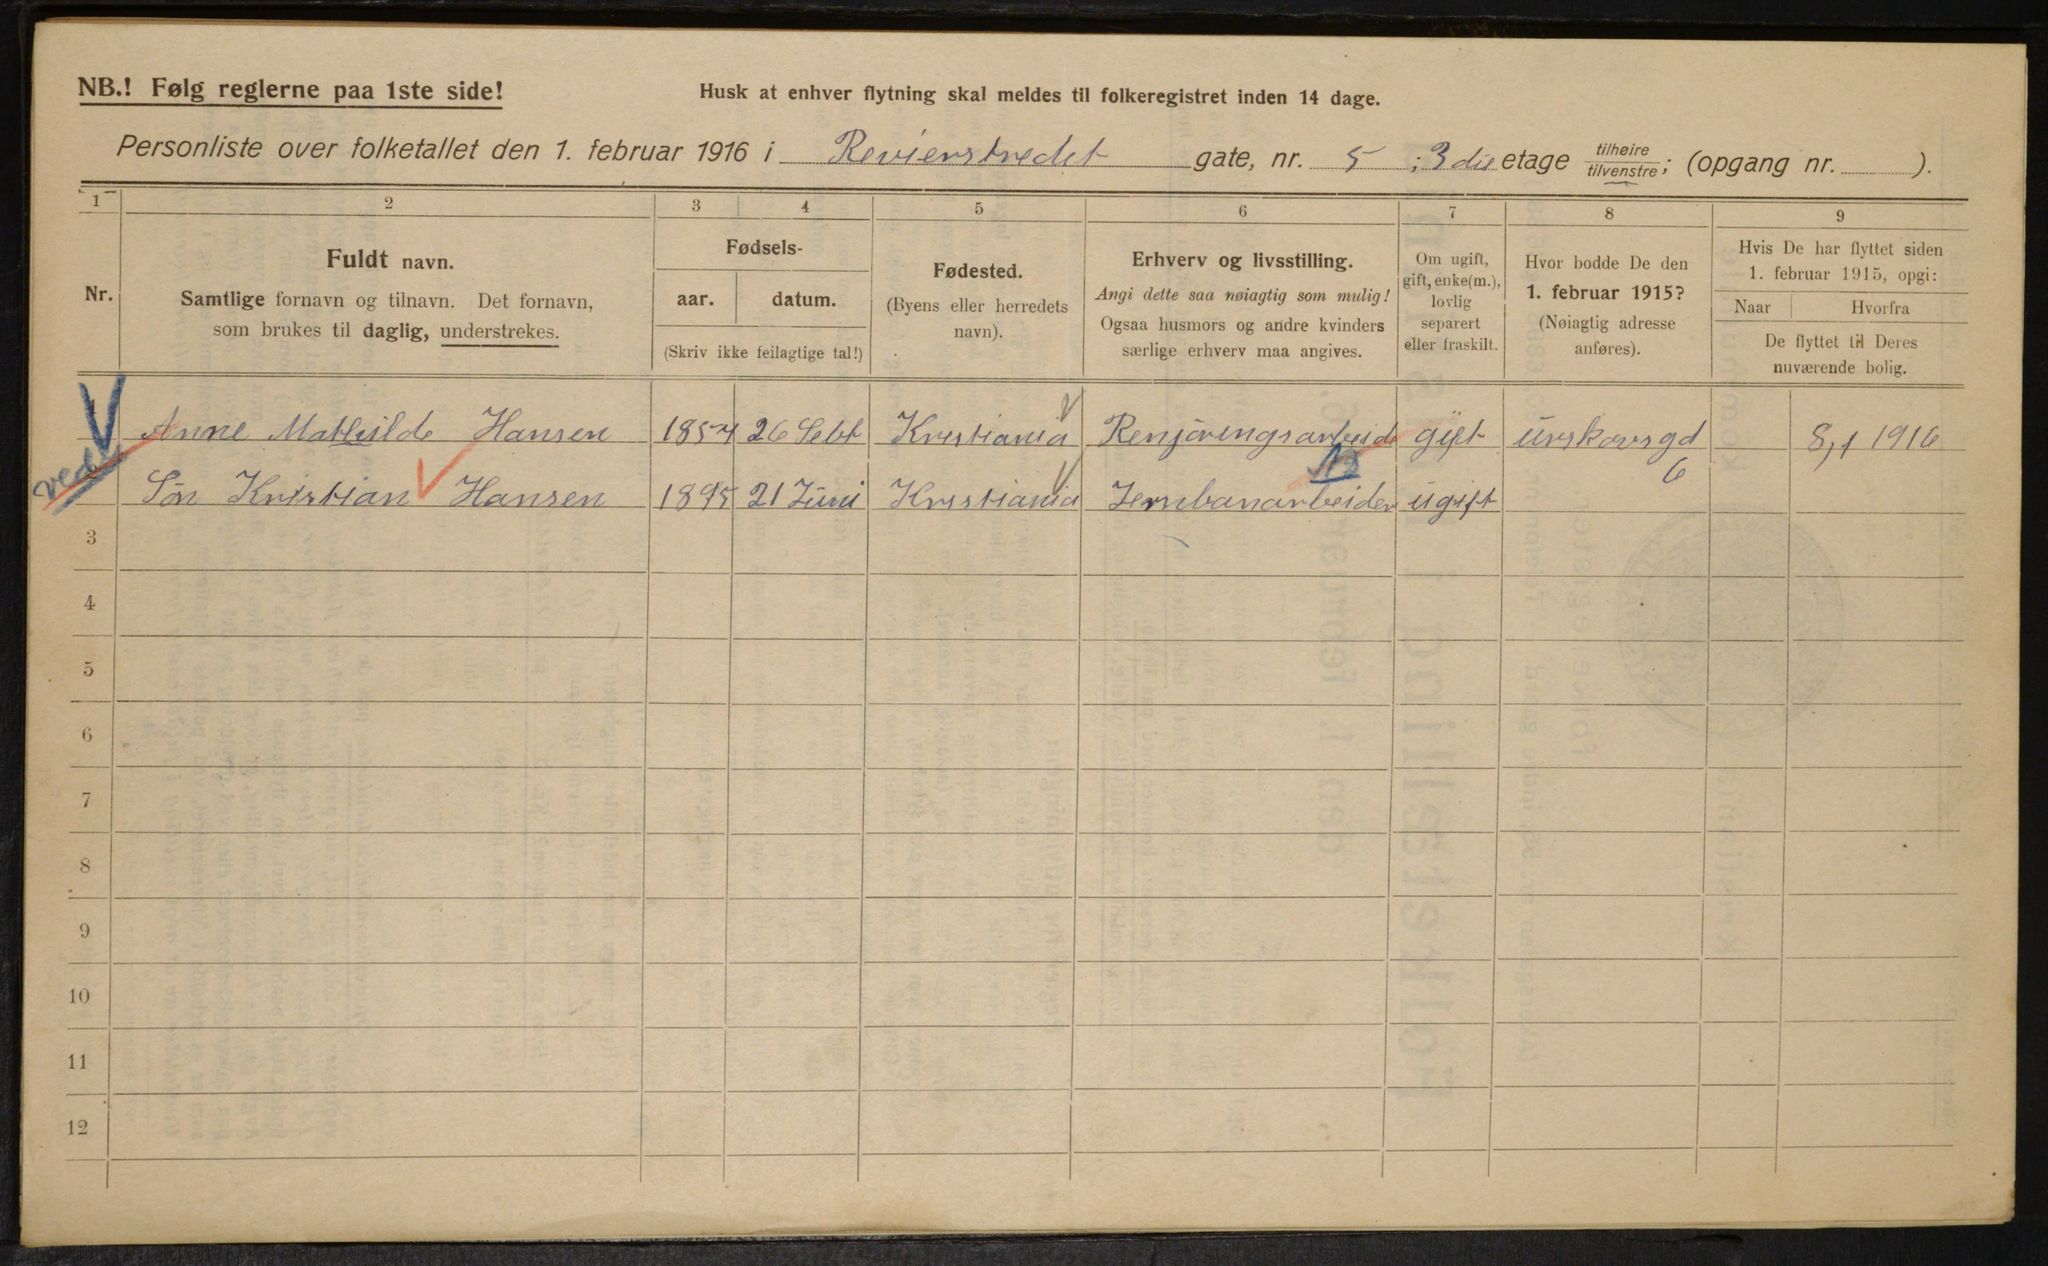 NB.! Følg reglerne paa 1ste side!
Husk at enhver flytning skal meldes til folkeregistret inden 14 dage.
Personliste over folketallet den 1. februar 1916 i Revierstredet gate, nr. 5 ; 3die etage tilhøire / tilvenstre; (opgang nr. ).
1 2 3 4 5 6 7 8 9
Nr.
Fuldt navn.
Samtlige fornavn og tilnavn. Det fornavn,
som brukes til daglig, understrekes.
Fødsels-
aar. datum.
(Skriv ikke feilagtige tal!)
Fødested.
(Byens eller herredets
navn).
Erhverv og livsstilling.
Angi dette saa nøiagtig som mulig!
Ogsaa husmors og andre kvinders
særlige erhverv maa angives.
Om ugift,
gift, enke(m.),
lovlig
separert
eller fraskilt.
Hvor bodde De den
1. februar 1915?
(Nøiagtig adresse
anføres).
Hvis De har flyttet siden
1. februar 1915, opgi:
Naar Hvorfra
De flyttet til Deres
nuværende bolig.
Anne Mathilde Hansen 1857 26 Sebt Kristiania Renjøringsarbeide gift Urskovsgd 8/1 1916
6
Søn Kristian Hansen 1895 21 Juni Kristiania Jernbanarbeider ugift
3
4
5
6
7
8
9
10
11
12